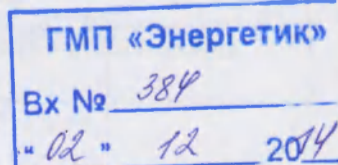 ГМП «Энергетик»
Вх № 384
" 02 " 12 2014